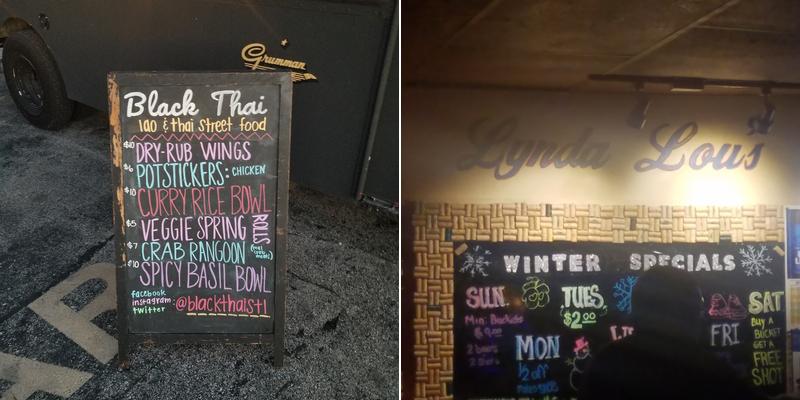 Grumman
Black Thai
lao & thai street food
$10 DRY-RUB WINGS
$6 POTSTICKERS: CHICKEN
$10 CURRY RICE BOWL
$5 VEGGIE SPRING ROLLS
$7 CRAB RANGOON
$10 SPICY BASIL BOWL
facebook
instagram: @blackthaistl
twitter
Lynda Lou's
WINTER SPECIALS
SUN.
TUES
$2.00
MON
1/2 off
FRI
SAT
BUY A
BUCKET
GET A
FREE
SHOT